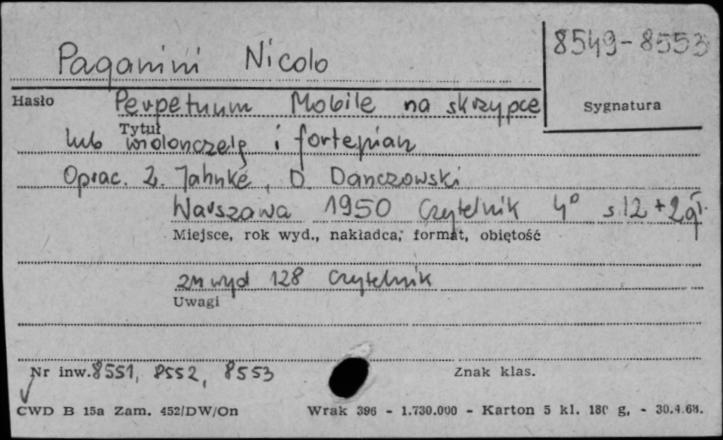 Paganini Nicolo
8549-8553
Hasło
Perpetuum Mobile na skrzypce
Sygnatura
Tytuł
lub wiolonczelę i fortepian
Oprac. Z. Jahnke, D. Danczowski
Warszawa 1950 Czytelnik 4° s 12 + 2 gł.
Miejsce, rok wyd., nakładca, format, objętość
zn wyd 128 Czytelnik
Uwagi
Nr inw. 8551, 8552, 8553
Znak klas.
CWD B 15a Zam. 452/DW/On
Wrak 396 - 1.730.000 - Karton 5 kl. 180 g, - 30.4.68.